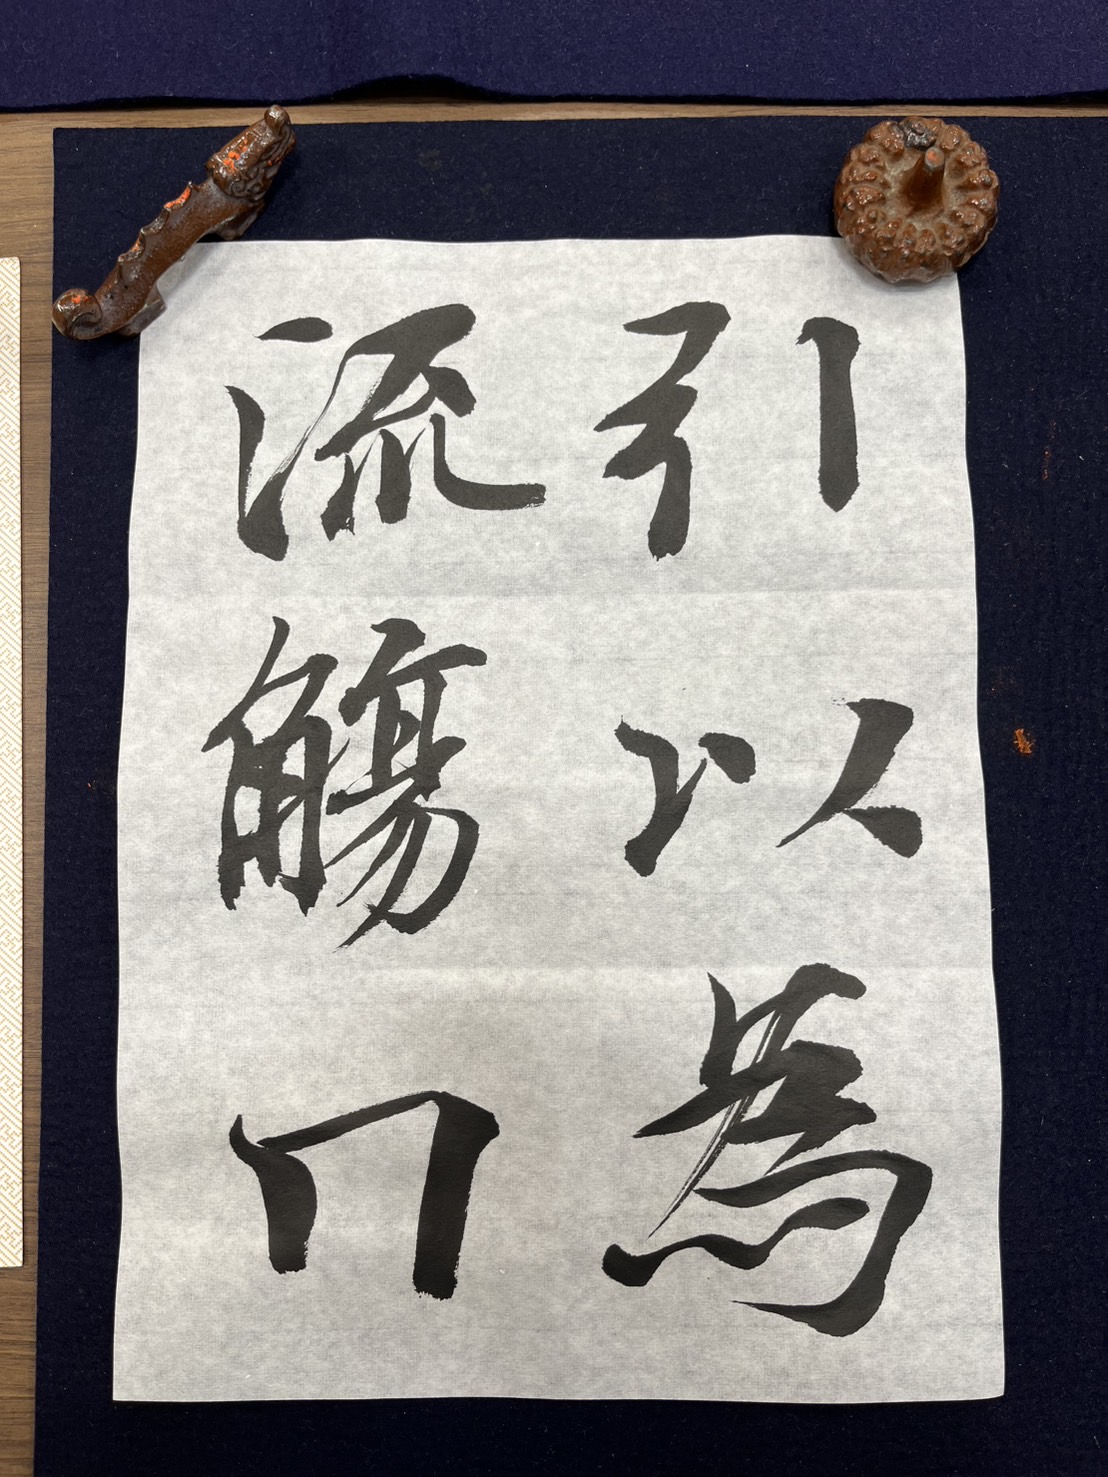 引以為
流觴冂